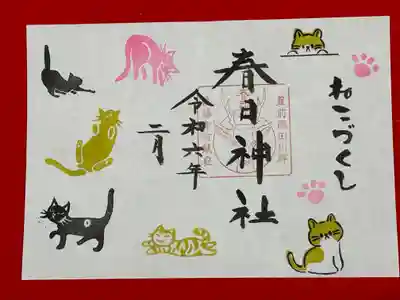 ねこづくし
豊前國田川郡
春日神社
令和六年
二月